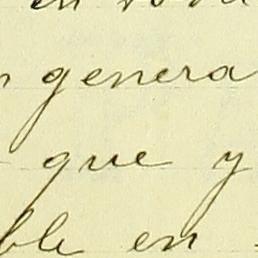 en
n genera
que y
ble en